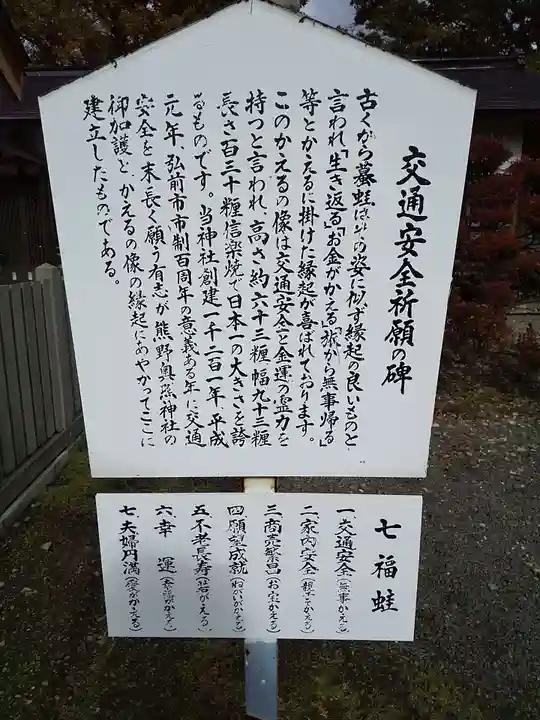 交通安全祈願の碑
古くから蟇蛙はその姿に似ず縁起の良いものと
言われ「生き返る」「お金がかえる」「旅から無事帰る」
等とかえるに掛けた縁起が喜ばれております。
このかえるの像は交通安全と金運の霊力を
持つと言われ高さ約六十三糎幅九十三糎
長さ百三十糎信楽焼で日本一の大きさを誇
るものです。当神社創建一千二百一年平成
元年、弘前市市制百周年の意義ある年に交通
安全を末長く願う有志が熊野奥照神社の
御加護と、かえるの像の縁起にあやかってここに
建立したものである。
七福蛙
一交通安全(無事かえる)
二家内安全(親子かえる)
三商売繁昌(お宝かえる)
四願望成就(ねがいがかえる)
五不老長寿(若がえる)
六幸運
七夫婦円満(愛がかえる)